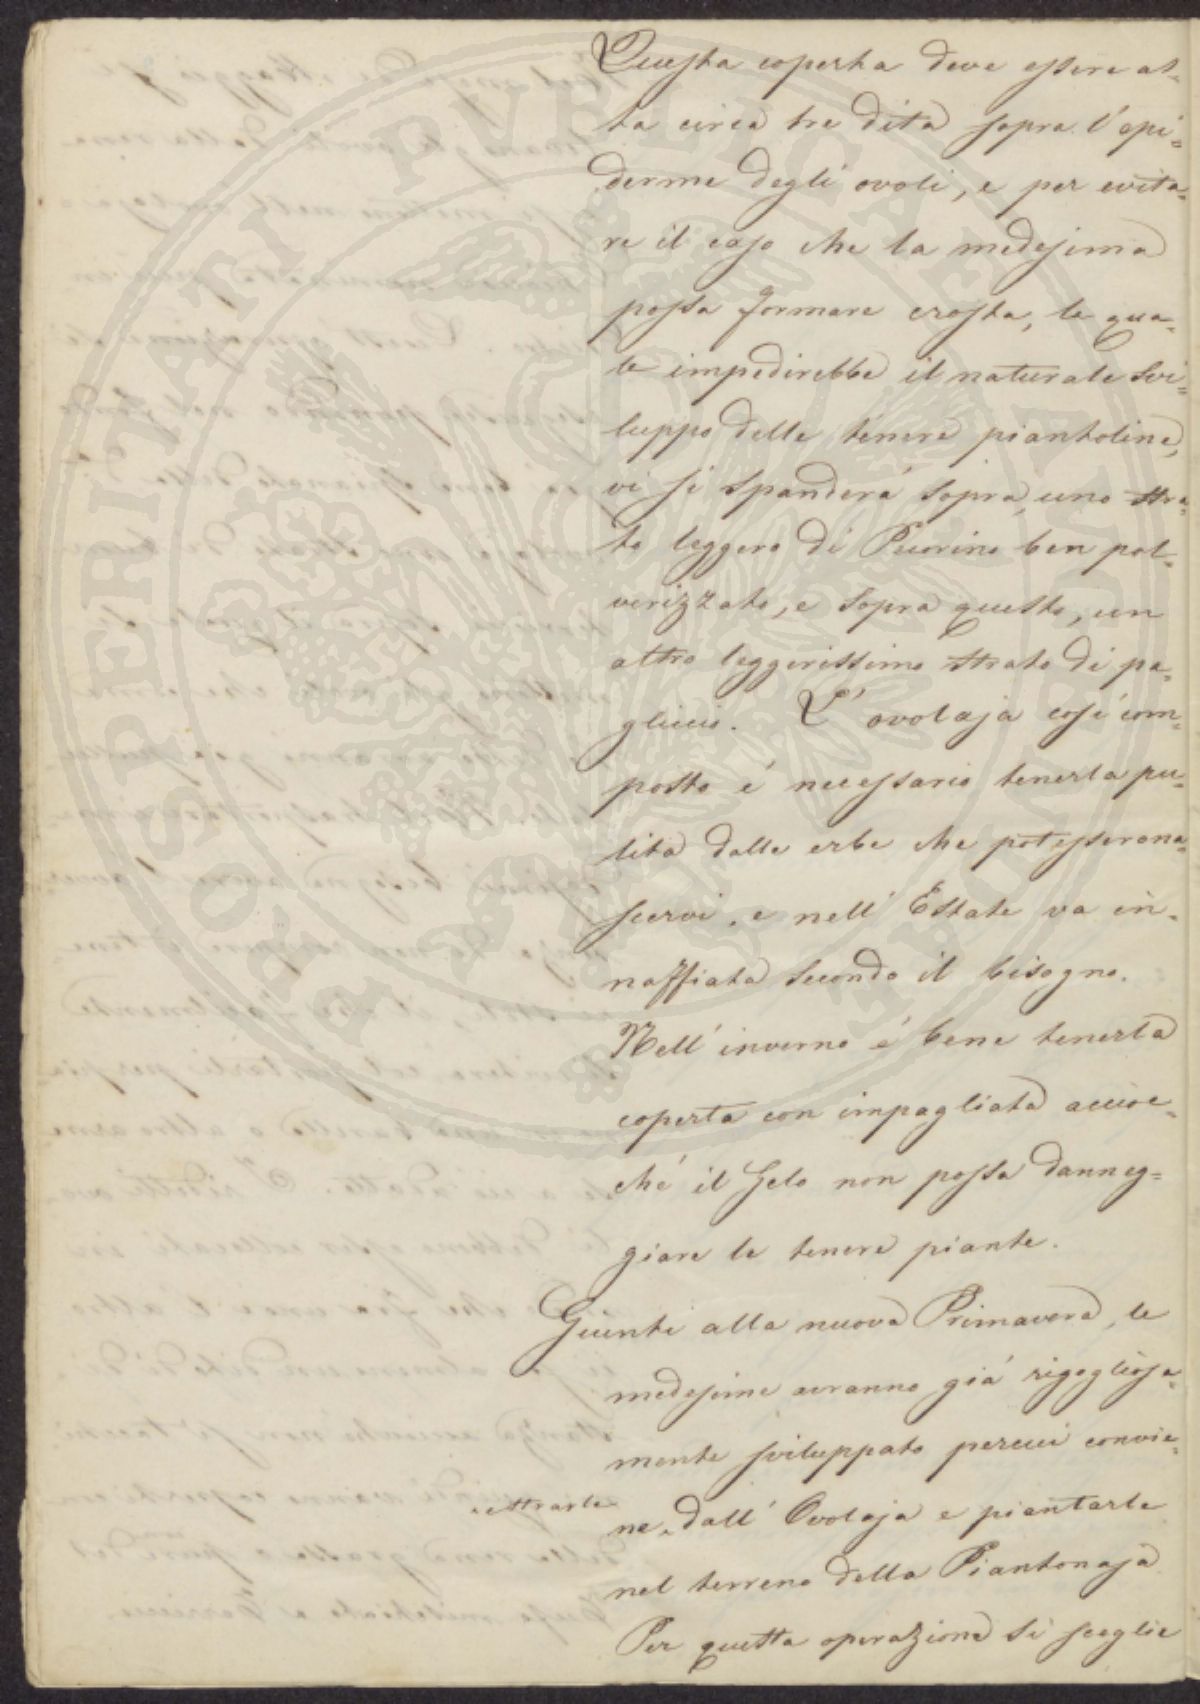 Questa coperta deve essere al-
ta circa tre dita sopra l'epi=
derme degli ovoli, e per evita=
re il caso che la medesima
possa formare crosta, la qua=
le impedirebbe il naturale svi=
luppo delle tenere piantoline,
vi si spanderá sopra, uno stra=
to leggero di Pecorino ben pol=
verizzato, e sopra questo, un
altro leggerissimo strato di pa=
gliccio. L'ovolaja cosí com=
posta é necessario tenerla pu=
lita dalle erbe che potessero na=
scervi, e nell'Estate va in=
naffiata secondo il bisogno.
Nell'inverno é bene tenerla
coperta con impagliata accioc=
ché il Gelo non possa danneg=
giare le tenere piante.
Giunti alla nuova Primavera, le
medesime avranno giá rigogliosa=
mente sviluppato percui convie=
ne, dall'Ovolaja e piantarle
estrarle
nel terreno della Piantonaja
Per questa operazione si sceglie
PROSPERITATI PVBLICAE AVGENDAE